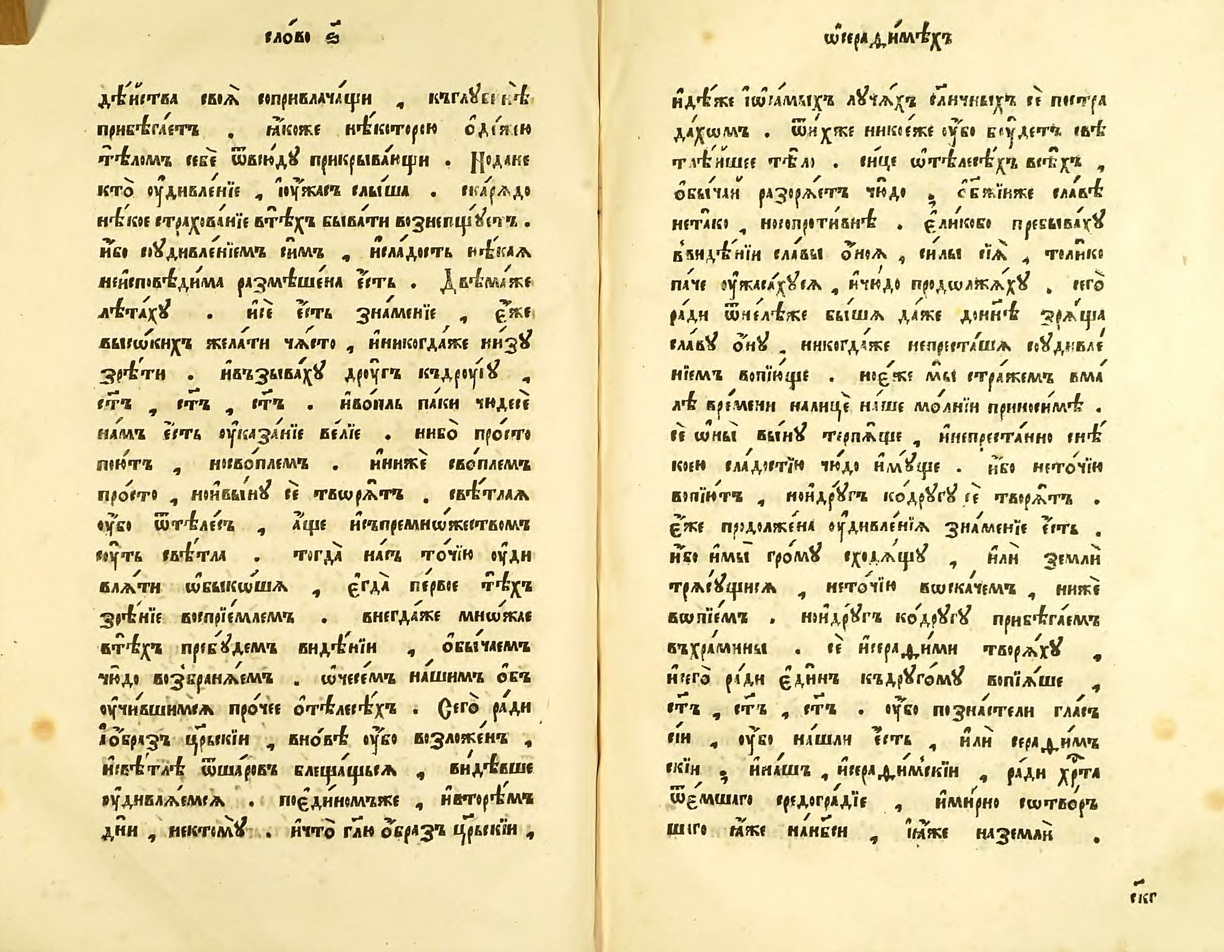 сло́во ѕ҃
дѣ́йства своѧ̀ сопривлача́ющи , къглꙋбинѣ̀
прибѣга́етъ . ꙗ҆́коже нѣ́которою ѻ҆дѣ́жею
тѣ́ломъ себѐ ѿвсю́дꙋ прикрыва́ющи . Нодане
кто̀ оу҆дивле́нїе , ꙋ҆́жасъ слы́ша . скарѧ́до
нѣ́кое страхова́нїе втѣ́хъ быва́ти вознепщꙋ́етъ .
и҆́бо соудивле́нїемъ си́мъ , и҆сла́дость нѣ́каѧ
неисповѣ́дима размѣ́шена є҆́сть . Двѣма́же
лѣта́хꙋ . и҆сѐ є҆́сть зна́менїе , є҆́же
высѡ́кихъ жела́ти ча́сто , и҆никогда́же ни́зꙋ
зрѣ́ти . и҆възыва́хꙋ дрꙋ́гъ къдрꙋ́гꙋ ,
ст҃ъ , ст҃ъ , ст҃ъ . и҆во́пль па́ки чюдесѐ
на́мъ є҆́сть оу҆каза́нїе ве́лїе . нибо̀ про́сто
пою́тъ , носво́племъ . и҆нижѐ сво́племъ
про́сто , нои҆вы́нꙋ сѐ творѧ́тъ . свѣ́тлаѧ
оу҆́бо ѿтѣле́съ , а҆́ще и҆съпремно́жествомъ
соу́ть свѣ́тла . тогда̀ на́съ то́чїю оу҆ди
влѧ́ти ѡ҆быко́шѧ , є҆гда̀ пе́рвое тѣ́хъ
зрѣ́нїе воспрїе́млемъ . внегда́же мно́жае
втѣ́хъ пребꙋ́демъ ви́дѣнїи , ѻ҆бы́чаемъ
чю́до возбранѧ́емъ . ѻ҆чесе́мъ на́шимъ ѻ҆бъ
оу҆чи́вшимсѧ про́чее ѻ҆тѣлесѣ́хъ . Сего̀ ра́ди
і҆ѻ҆́бразъ цр҃ьскїи , вно́вѣ оу҆́бо возло́женъ ,
и҆свѣ́тлѣ ѿша́ровъ блеща́щьсѧ , ви́дѣвше
оу҆дивлѧ́емсѧ . пое҆ди́номъже , и҆вторѣ́мъ
дн҃и , нектомꙋ̀ . и҆что̀ гл҃ю ѻ҆́бразъ цр҃ьскїи ,
ѡ҆серафи́мѣхъ
и҆дѣ́же і҆ѡ҆самы́хъ лꙋча́хъ сл҃нчныхъ сѐ постра
да́хомъ . ѿни́хже никое́же оу҆́бо бꙋ́детъ свѣ
тлѣ́йшее тѣ́ло . си́це ѡ҆тѣлесѣ́хъ всѣ́хъ ,
ѻ҆бы́чай разорѧ́етъ чю́до , ѻ҆бж҃їиже сла́вѣ
нета́ко , носопроти́внѣ . є҆ли́кобо пребыва́хꙋ
вви́дѣнїи сла́вы ѻ҆́ноѧ , си́лы сїѧ̀ , толи́ко
па́че оу҆жаса́хꙋсѧ , и҆чю́до продолжа́хꙋ , сего̀
ра́ди ѿне́лѣже бы́шѧ да́же дони́нѣ зрѧ́ща
сла́вꙋ ѻ҆́нꙋ , никогда́же непреста́шѧ соудивле́
нїемъ вопїю́ще . ное҆́же мы̀ стра́жемъ вма́
лѣ вре́мени налицѐ на́ше мо́лнїи приноси́мѣ .
сѐ ѻ҆ны̀ вы́нꙋ терпѧ́ще , и҆непреста́нно снѣ́
коею сла́достїю чю́до и҆мꙋ́ще . и҆́бо нето́чїю
вопїю́тъ , нои҆дрꙋ́гъ ко́дрꙋгꙋ сѐ творѧ́тъ .
є҆́же продолже́на оу҆дивле́нїѧ зна́менїе є҆́сть .
и҆́бо и҆мы̀ гро́мꙋ сходѧ́щꙋ , и҆лѝ землѝ
трѧсꙋ́щисѧ , нето́чїю воска́чемъ , нижѐ
вопїе́мъ . нои҆дрꙋ́гъ ко́дрꙋгꙋ прибѣга́емъ
въхра́мины . сѐ и҆серафи́ми творѧ́хꙋ ,
и҆сего̀ ра́ди є҆ди́нъ къдрꙋго́мꙋ вопїѧ́ше ,
ст҃ъ , ст҃ъ , ст҃ъ . оу҆́бо позна́стели гла́съ
сїи , оу҆́бо на́шли є҆́сть , и҆лѝ серафи́мъ
скїи , и҆на́шъ , и҆серафи́мскїи , ра́ди хр҃та̀
ѿе́мшаго средогра́дїе , и҆ми́рно сотво́рь
шаго ꙗ҆́же на́нб҃си , і҆ꙗ҆́же наземлѝ .
ск҃г